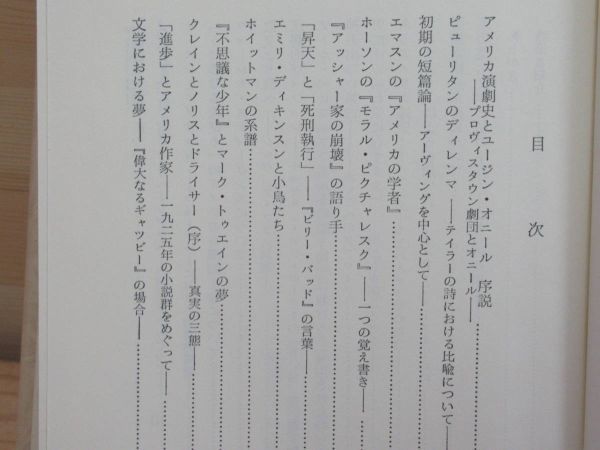 目次
アメリカ演劇史とユージン・オニール 序説
――プロヴィスタウン劇団とオニール――
ピューリタンのディレンマ ――テイラーの詩における比喩について――
初期の短篇論――アーヴィングを中心として――
エマスンの『アメリカの学者』
ホーソンの『モラル・ピクチャレスク』――一つの覚え書き――
『アッシャー家の崩壊』の語り手
「昇天」と「死刑執行」――『ビリー・バッド』の言葉――
エミリ・ディキンスンと小鳥たち
ホイットマンの系譜
『不思議な少年』とマーク・トゥエインの夢
クレインとノリスとドライサー（序）――真実の三態――
「進歩」とアメリカ作家――一九二五年の小説群をめぐって――
文学における夢――『偉大なるギャツビー』の場合――